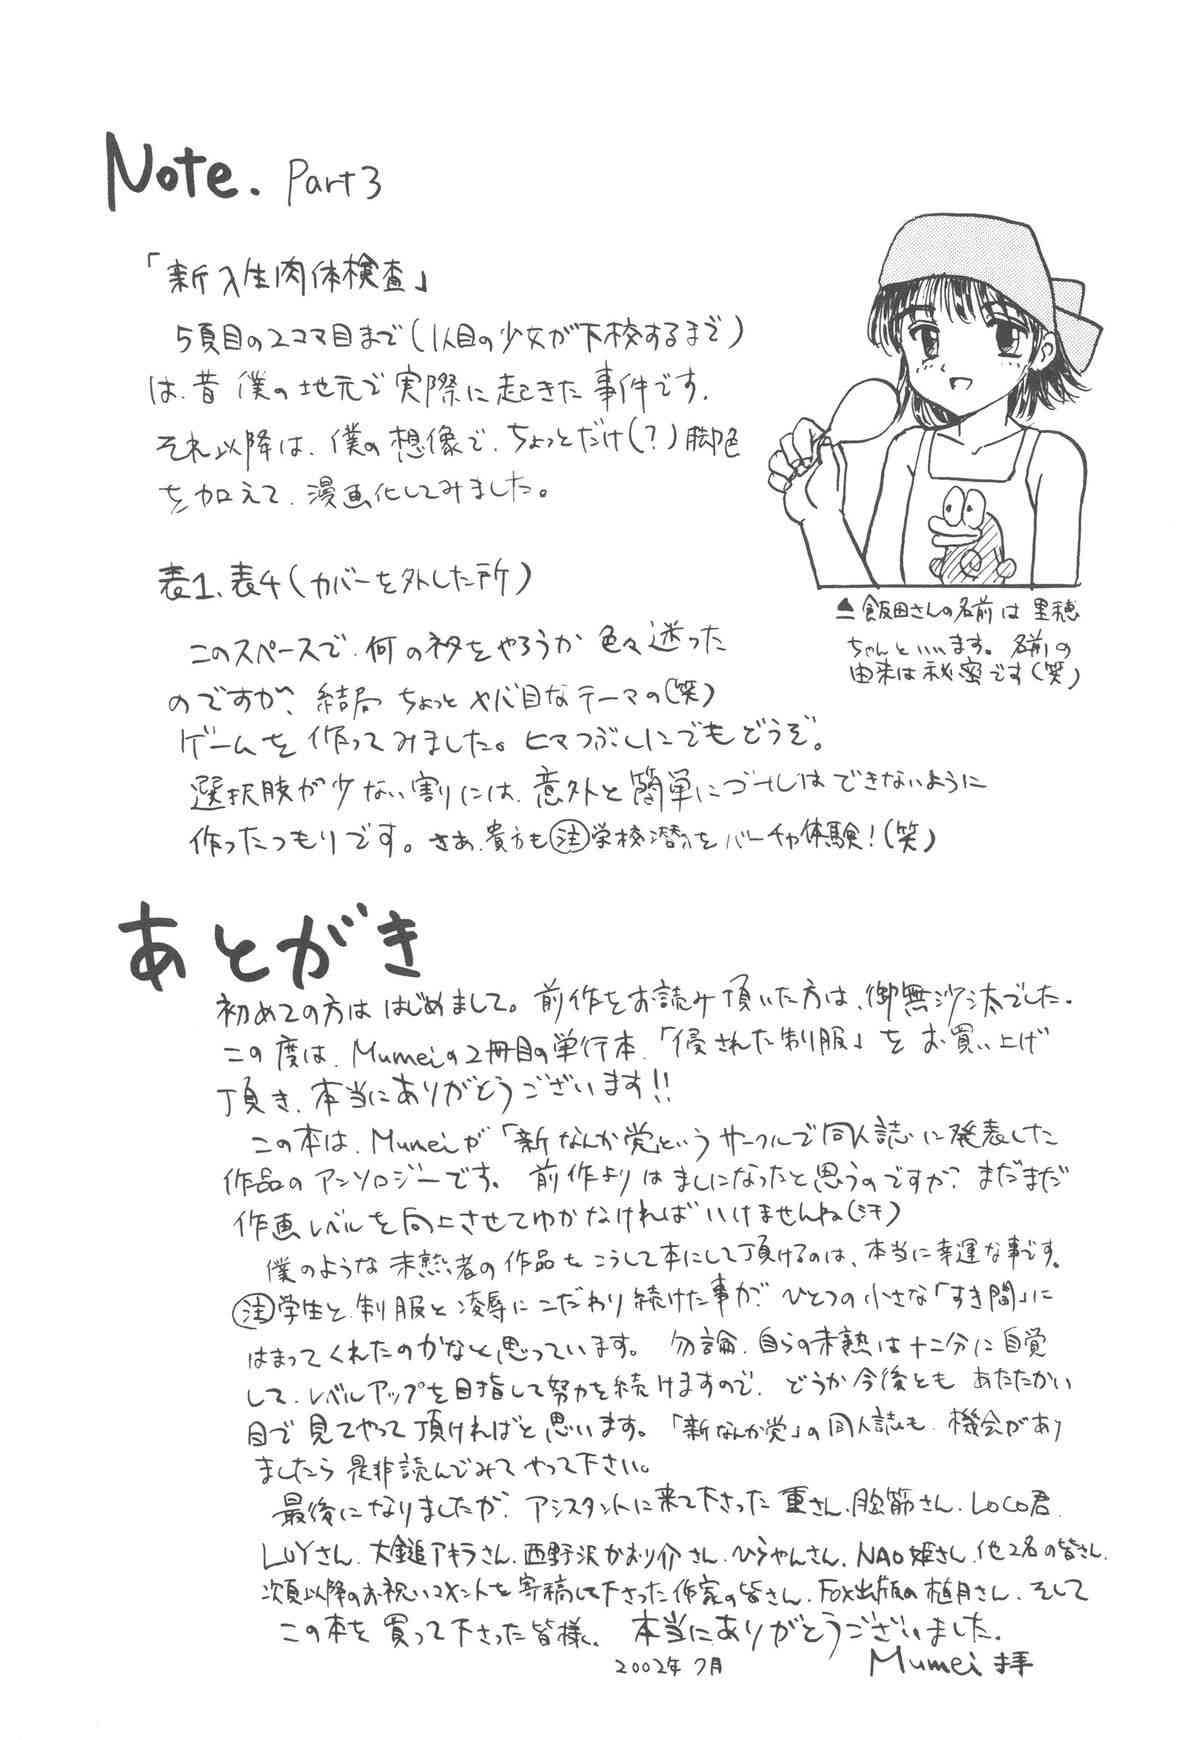 Note. Part3
「新入生肉体検査」
5頁目の2コマ目まで(1人目の少女が下校するまで)
は、昔僕の地元で実際に起きた事件です。
それ以降は、僕の想像で、ちょっとだけ(?)脚色
を加えて、漫画化してみました。
表1、表4(カバーを外した所)
このスペースで、何のネタをやろうか色々迷った
のですが、結局ちょっとヤバ目なテーマの(笑)
ゲームを作ってみました。ヒマつぶしにでもどうぞ。
選択肢が少ない割りには、意外と簡単にゴールはできないように
作ったつもりです。さあ、貴方も㊟学校潜入をバーチャ体験!(笑)
▲飯田さんの名前は里穂
ちゃんといいます。名前の
由来は秘密です(笑)
あとがき
初めての方ははじめまして。前作をお読み頂いた方は、御無沙汰でした。
この度は、Mumeiの2冊目の単行本、「侵された制服」をお買い上げ
頂き、本当にありがとうございます!!
この本は、Mumeiが「新なんか党」というサークルで同人誌に発表した
作品のアンソロジーです。前作よりはましになったと思うのですが、まだまだ
作画レベルを向上させてゆかなければいけませんね(汗)
僕のような未熟者の作品をこうして本にして頂けるのは、本当に幸運な事です。
㊟学生と、制服と凌辱にこだわり続けた事が、ひとつの小さな「すき間」に
はまってくれたのかなと思っています。勿論、自らの未熟は十二分に自覚
して、レベルアップを目指して努力を続けますので、どうか今後ともあたたかい
目で見てやって頂ければと思います。「新なんか党」の同人誌も、機会があり
ましたら是非読んでみてやって下さい。
最後になりましたが、アシスタントに来て下さった重さん、胸筋さん、LOCO君、
LUYさん、大鎚アキラさん、西野沢かおり介さん、ひらやんさん、NAO姫さん、他2名の皆さん、
次頁以降のお祝いコメントを寄稿して下さった作家の皆さん、FOX出版の植月さん、そして
この本を買って下さった皆様、本当にありがとうございました。
2002年7月 Mumei拝